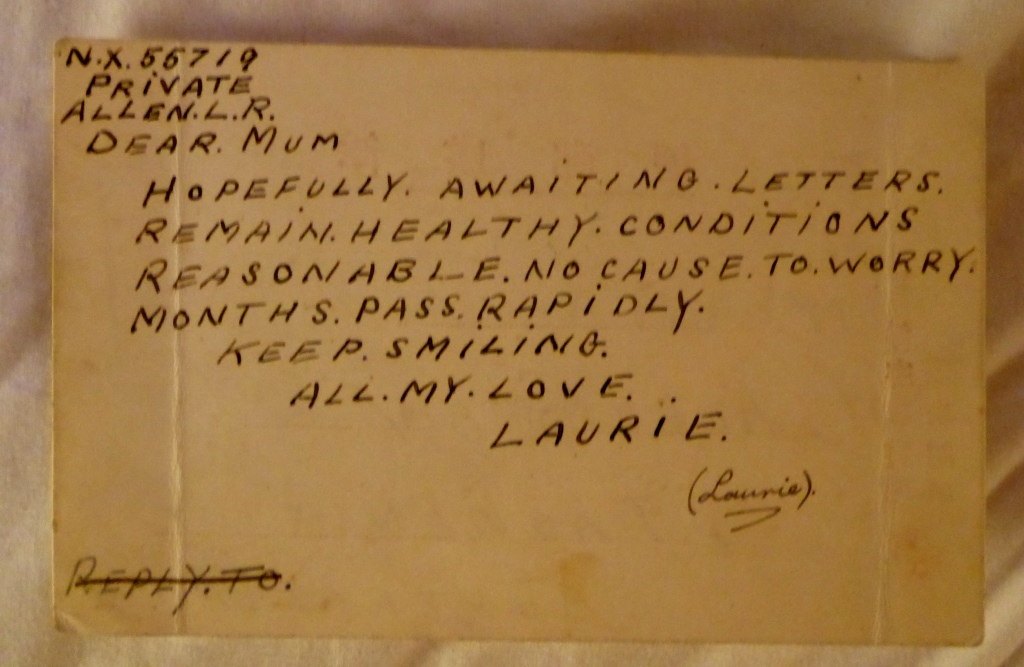 N.X. 55719
PRIVATE
ALLEN. L.R.
DEAR. MUM
HOPEFULLY. AWAITING. LETTERS.
REMAIN. HEALTHY. CONDITIONS
REASONABLE. NO CAUSE. TO. WORRY.
MONTHS. PASS. RAPIDLY.
KEEP. SMILING.
ALL. MY. LOVE.
LAURIE.
(Laurie).
REPLY. TO.